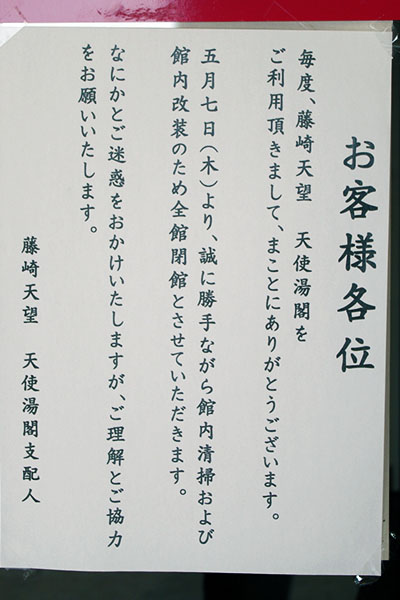 お客様各位
毎度、藤崎天望　天使湯閣を
ご利用頂きまして、まことにありがとうございます。
五月七日(木)より、誠に勝手ながら館内清掃および
館内改装のため全館閉館とさせていただきます。
なにかとご迷惑をおかけいたしますが、ご理解とご協力
をお願いいたします。
藤崎天望　天使湯閣支配人